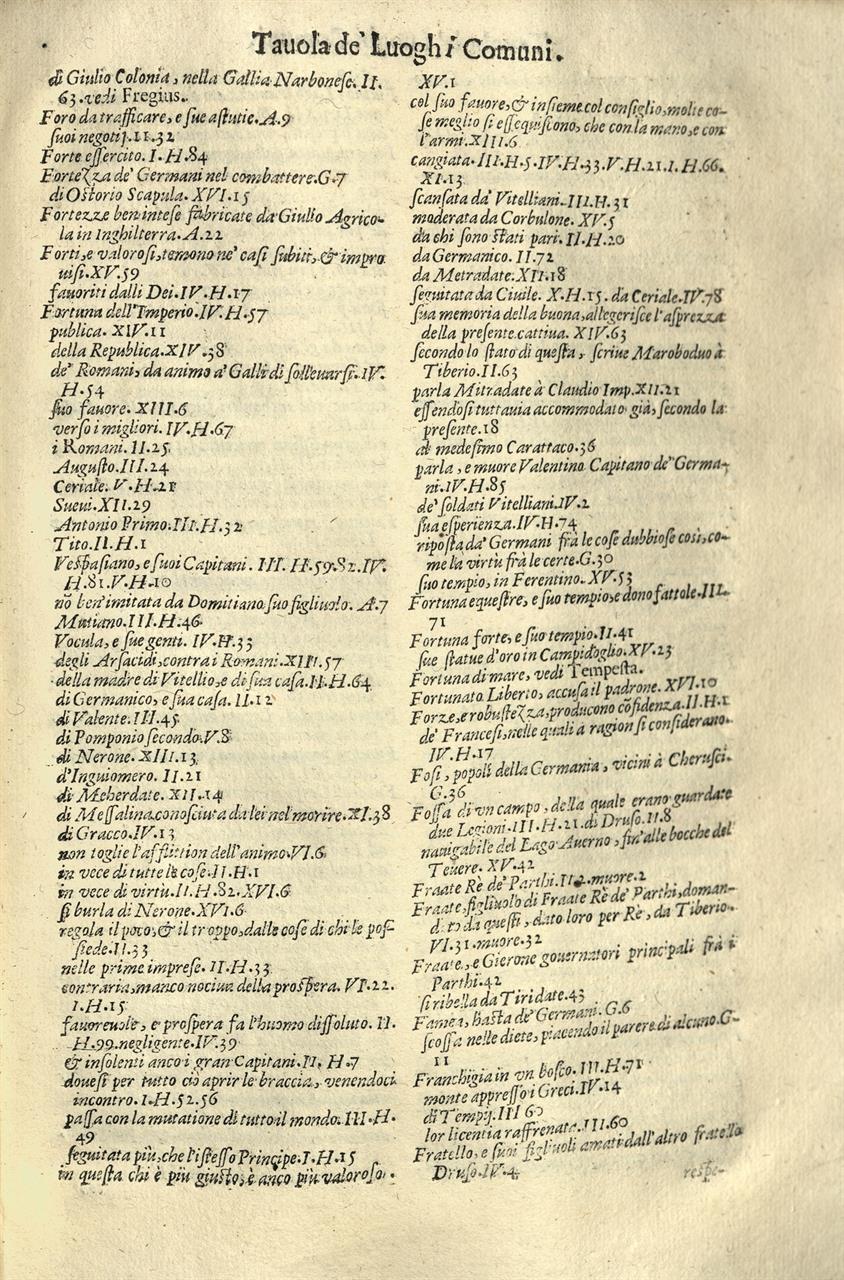 Tauola de' Luoghi Comuni.
di Giulio Colonia, nella Gallia Narbonese. II.
63. vedi Fregius.
Foro da trafficare, e sue astutie. A.9
suoi negotij. 11.32
Forte essercito. I.H.84
Fortezza de' Germani nel combattere. G.7
di Ostorio Scapula. XVI.15
Fortezze ben intese fabricate da Giulio Agrico-
la in Inghilterra. A.22
Forti, e valorosi, temono ne' casi subiti, & impro
uisi. XV.59
fauoriti dalli Dei. IV.H.17
Fortuna dell'Imperio. IV.H.57
publica. XIV.11
della Republica. XIV.38
de' Romani, da animo a' Galli di solleuarsi. IV.
H.54
suo fauore. XIII.6
verso i migliori. IV.H.67
i Romani. II.25
Augusto. III.24
Ceriale. V.H.21
Sueui. XII.29
Antonio Primo. III.H.32
Tito. II.H.1
Vespasiano, e suoi Capitani. III. H.59.82. IV.
H.81. V.H.10
nō ben'imitata da Domitiano suo figliuolo. A.7
Mutiano. III.H.46
Vocula, e sue genti. IV.H.33
degli Arsacidi, contra i Romani. XIII.57
della madre di Vitellio, e di sua casa. II.H.64
di Germanico, e sua casa. II.12
di Valente. III.45
di Pomponio secondo. V.8
di Nerone. XIII.13
d'Inguiomero. II.21
di Meherdate. XII.14
di Messalina conosciuta da lei nel morire. XI.38
di Gracco. IV.13
non toglie l'afflittion dell'animo. VI.6
in vece di tutte le cose. II.H.1
in vece di virtù. II.H.82. XVI.6
si burla di Nerone. XVI.6
regola il poco, & il troppo, dalle cose di chi le pos-
siede. II.33
nelle prime imprese. II.H.33
contraria, manco nociua della prospera. VI.22.
I.H.15
fauoreuole, e prospera fa l'huomo dissoluto. II.
H.99. negligente. IV.39
& insolenti anco i gran Capitani. II. H.7
douesi per tutto ciò aprir le braccia, venendoci
incontro. I.H.52.56
passa con la mutatione di tutto il mondo. III.H.
49
seguitata più, che l'istesso Principe. I.H.15
in questa chi è più giusto, è anco più valoroso.
XV.1
col suo fauore, & insieme col consiglio, molte co-
se meglio si essequiscono, che con la mano, e con
l'armi. XIII.6
cangiata. III.H.5. IV.H.33. V.H.21. I.H.66.
XI.13
scansata da' Vitelliani. III.H.31
moderata da Corbulone. XV.5
da chi sono stati pari. II.H.20
da Germanico. II.72
da Metradate. XII.18
seguitata da Ciuile. X.H.15. da Ceriale. IV.78
sua memoria della buona, allegerisce l'asprezza
della presente cattiua. XIV.63
secondo lo stato di questa, scriue Maroboduo à
Tiberio. II.63
parla Mitradate à Claudio Imp. XII.21
essendosi tuttauia accommodato già, secondo la
presente. 18
al medesimo Carattaco. 36
parla, e muore Valentino Capitano de' Germa-
ni. IV.H.85
de' soldati Vitelliani. IV.2
sua esperienza. IV.H.74
riposta da' Germani frà le cose dubbiose così, co-
me la virtù frà le certe. G.30
suo tempio, in Ferentino. XV.53
Fortuna equestre, e suo tempio, e dono fattole. III.
71
Fortuna forte, e suo tempio. II.41
sue statue d'oro in Campidoglio. XV.23
Fortuna di mare, vedi Tempesta.
Fortunato Liberto, accusa il padrone. XVI.10
Forze, e robustezza, producono cōfidenza. II.H.1
de' Francesi, nelle quali a ragion si considerano.
IV.H.17
Fosi, popoli della Germania, vicini à Cherusci.
G.36
Fossa di vn campo, della quale erano guardate
due Legioni. III.H.21. di Druso. II.8
nauigabile del Lago Auerno, fin'alle bocche del
Teuere. XV.42
Fraate Rè de' Parthi. II.2. muore. 2
Fraate, figliuolo di Fraate Rè de' Parthi, doman-
dato da questi, dato loro per Rè, da Tiberio.
VI.31. muore. 32
Fraate, e Gierone gouernatori principali frà i
Parthi. 42
si ribella da Tiridate. 43
Famea, hasta de' Germani. G.6
scossa nelle diete, piacendo il parere di alcuno. G.
11
Franchigia in vn bosco. III.H.71
monte appresso i Greci. IV.14
di Tempij. III 60
lor licentia raffrenata. III.60
Fratello, e suoi figliuoli amati dall'altro fratello
Druso. IV.4
rispe-